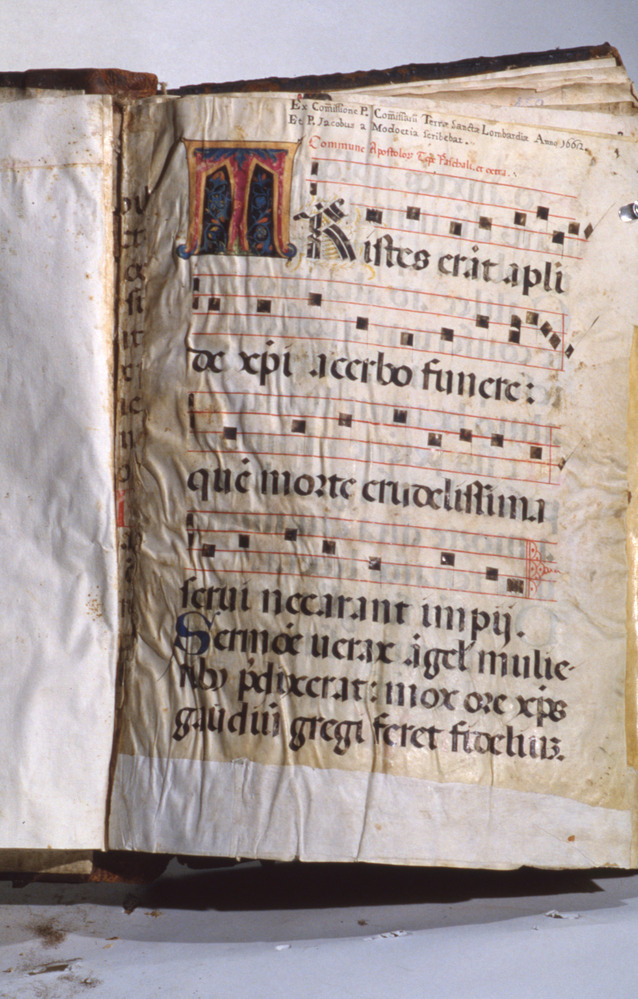 Ex Comissione P. Comissarii Terræ Sanctæ Lombardiæ Anno 1662.
Et P. Jacobus a Modoetia scribebat.
Commune Apostolor. Tep̄e Paschali. et cetra.
TRistes erāt apli
de xp̄i acerbo funere:
quē morte crudelissima
serui necarant impij.
Sermōe uerax āgel mulie-
ribꝫ p̄dixerat: mox ore xp̄s
gaudiū gregi feret fideliuꝫ.